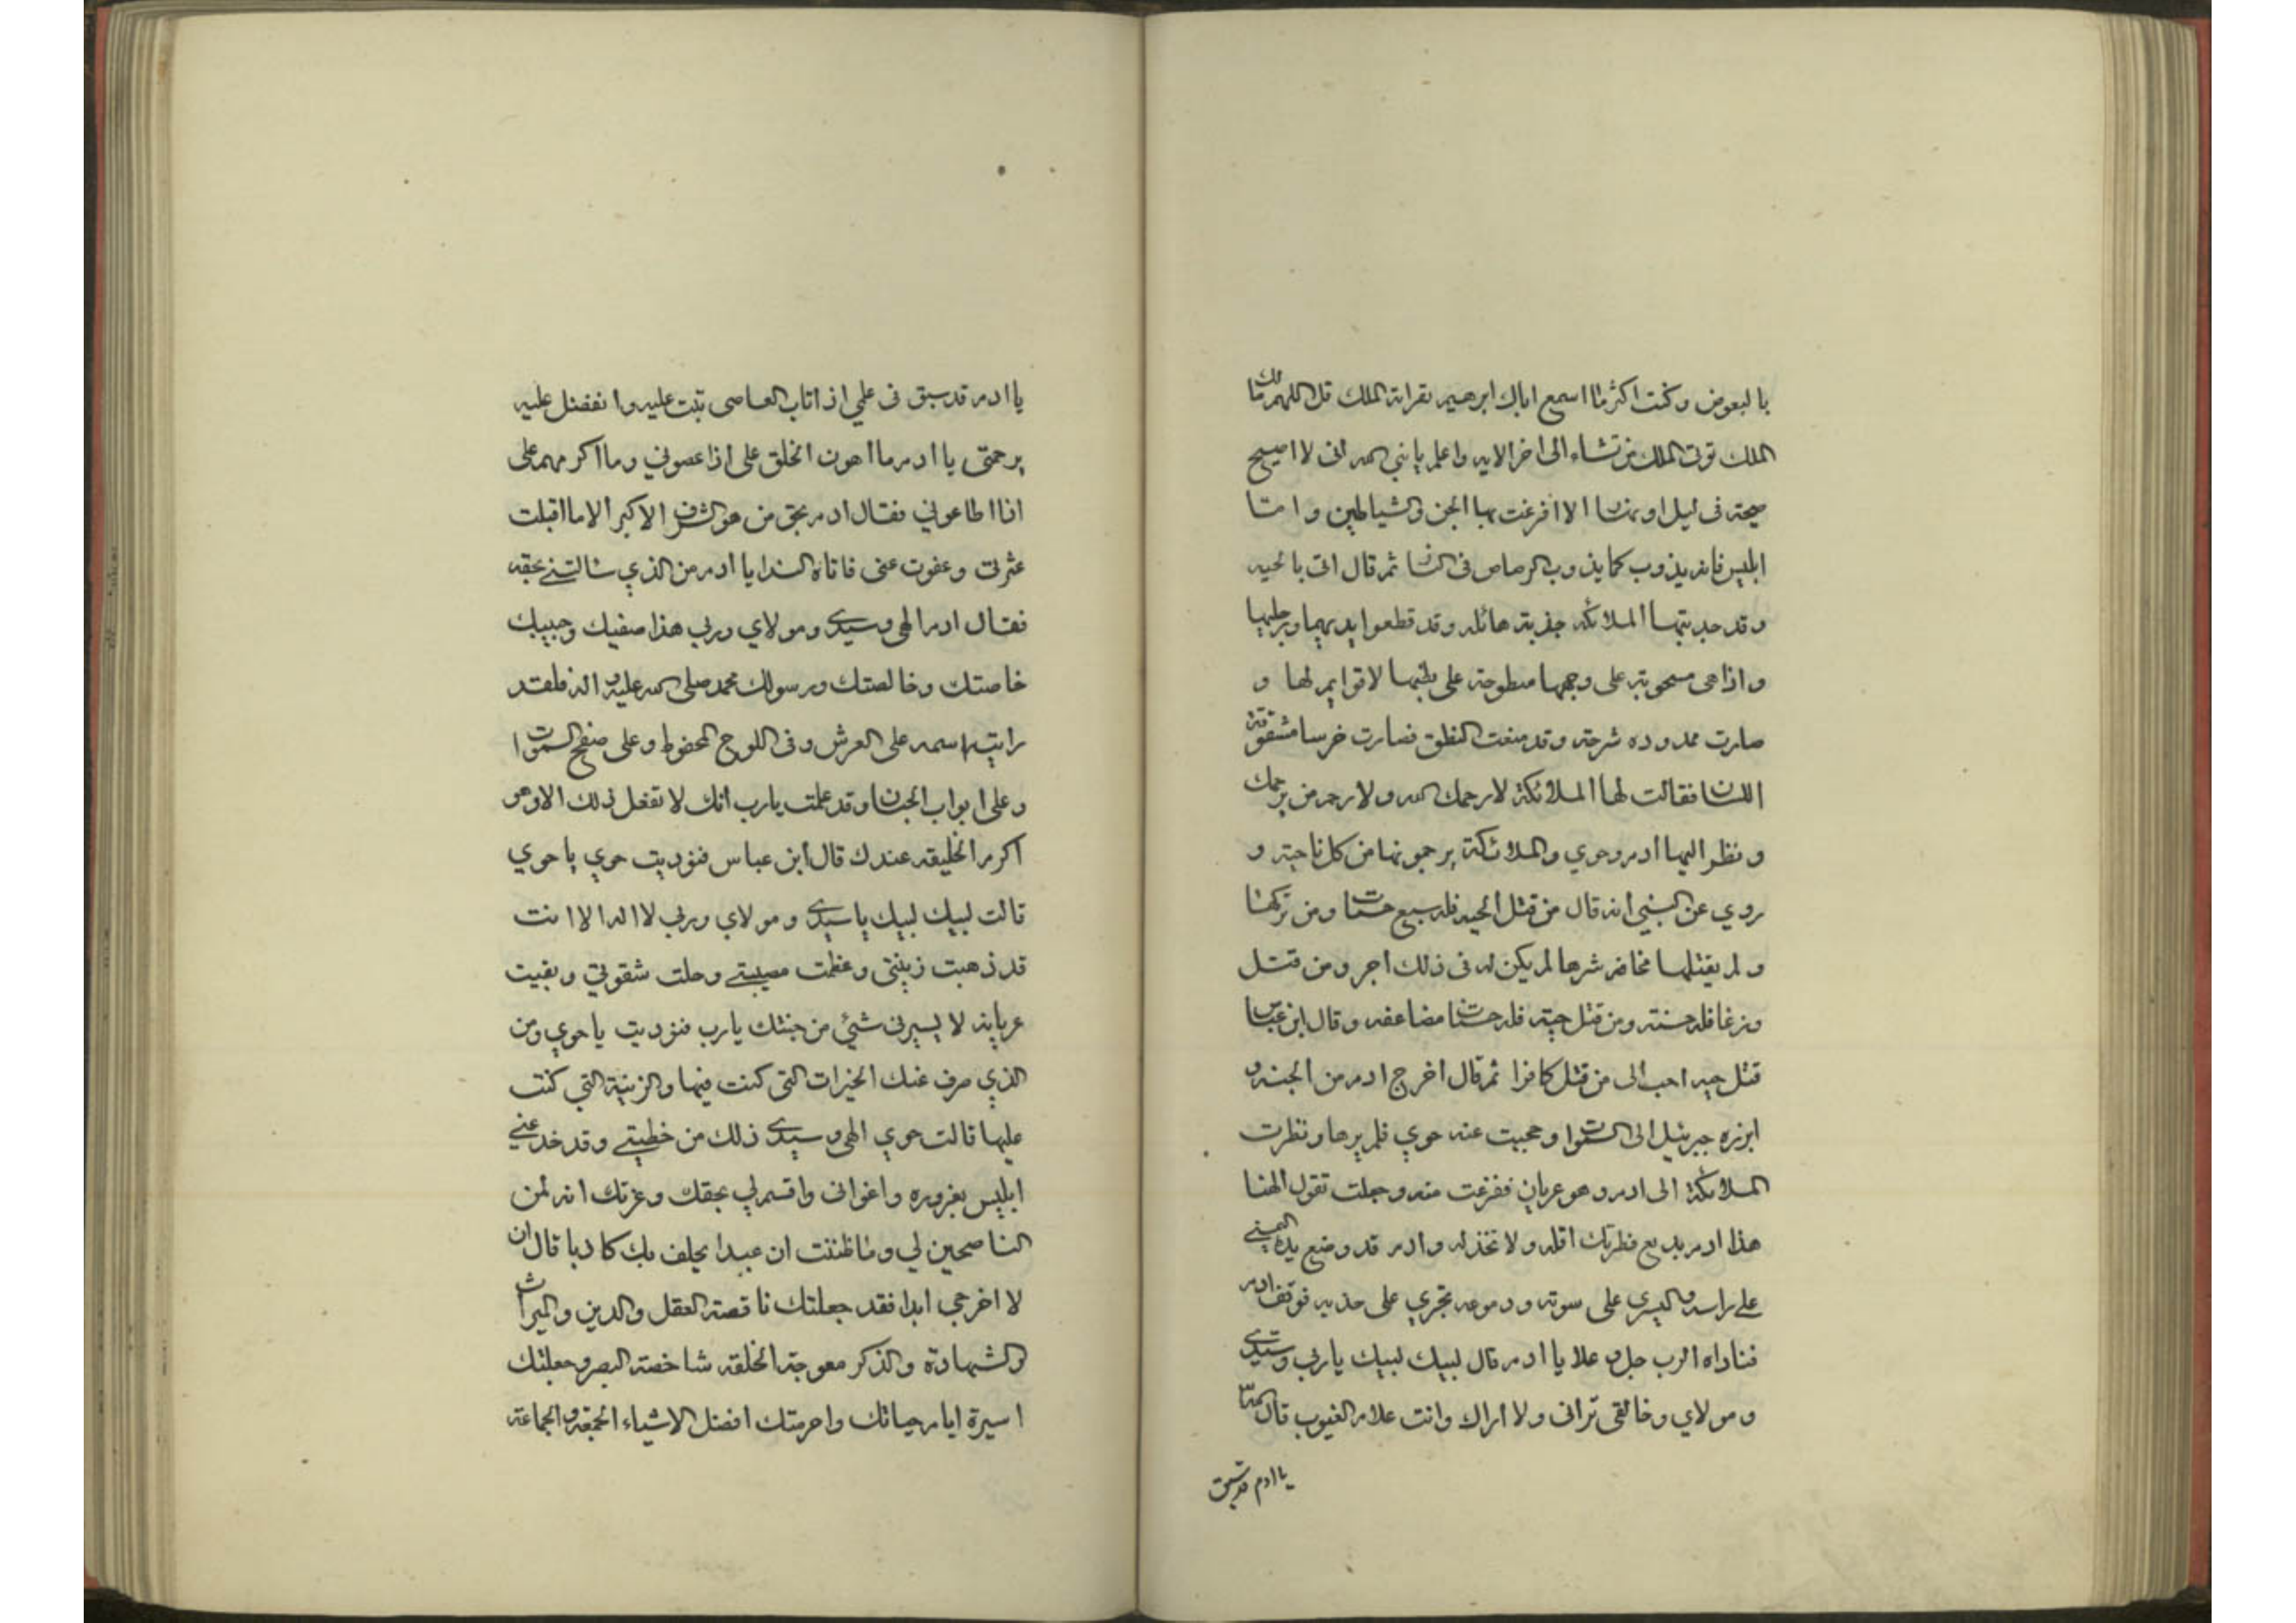 بالبعوض وكنت اكثر ما اسمع اباك ابرهيم بقراته الملك قل اللهم مالك
الملك توتى الملك من تشاء الى اخر الايه واعلم يا نبي الله انى لا اصيح
صيحة فى ليل او نهار الا افزعت بها الجن والشياطين واما
ابليس فانه يذوب كما يذوب الرصاص فى النار ثم قال اتى بالحيه
وقد جذبتها الملائكه جذبة هائله وقد قطعوا يديها ورجليها
واذا هى مسحوبة على وجهها مبطوحة على بطنها لا قوايم لها و
صارت ممدوده شرحة وقد منعت النطق فصارت خرسا مشقوقة
اللسان فقالت لها الملائكة لا رحمك الله ولا رحم من يرحمك
ونظر اليها ادم وحوي والملائكة يرجمونها من كل ناحية و
روي عن النبي انه قال من قتل الحيه فله سبع حسنات ومن تركها
ولم يقتلها مخافه شرها لم يكن له فى ذلك اجر ومن قتل
وزغا فله حسنة ومن قتل حية فله حسنات مضاعفه وقال ابن عباس
قتل حيه احب الى من قتل كافرا ثم قال اخرج ادم من الجنه و
ابرزه جبرئيل الى السموات وحجبت عنه حوي فلم يرها ونظرت
الملائكة الى ادم وهو عريان ففزعت منه وجعلت تقول الهنا
هذا ادم بديع فطرتك اقله ولا تخذله وادم قد وضع يده اليمنى
على راسه واليسرى على سوته ودموعه تجري على خديه فوقف ادم
فناداه الرب جل وعلا يا ادم قال لبيك لبيك يا ربي وسيدي
ومولاي وخالقى ترانى ولا اراك وانت علام الغيوب قال الله
يا ادم قد سبق
يا ادم قد سبق فى علمي اذا تاب العاصى تبت عليه واتفضل عليه
برحمتى يا ادم ما اهون الخلق على اذا عصوني وما اكرمهم على
اذا اطاعوني فقال ادم بحق من هو الشرف الاكبر الا ما اقبلت
عثرتى وعفوت عنى فاتاه الندا يا ادم من الذي سالتنى بحقه
فقال ادم الهى وسيدي ومولاي وربي هذا صفيك وحبيبك
خاصتك وخالصتك ورسولك محمد صلى الله عليه واله فلقد
رايت اسمه على العرش وفى اللوح المحفوظ وعلى صفح السموات
وعلى ابواب الجنان وقد علمت يا رب انك لا تفعل ذلك الا وهو
اكرم الخليقه عندك قال ابن عباس فنوديت حوي يا حوي
قالت لبيك لبيك يا سيدي ومولاي وربي لا اله الا انت
قد ذهبت زينتى وعظمت مصيبتي وحلت شقوتي وبقيت
عريانه لا يسترنى شئ من جنتك يا رب فنوديت يا حوي ومن
الذي صرف عنك الخيرات التى كنت فيها والزينة التي كنت
عليها قالت حوي الهى وسيدي ذلك من خطيتي وقد خدعني
ابليس بغروره واغوانى واقسم لي بحقك وعزتك انه لمن
الناصحين لي وما ظننت ان عبدا يحلف بك كاذبا قال الان
لا اخرجى ابدا فقد جعلتك ناقصة العقل والدين والميراث
والشهادة والذكر معوجة الخلقه شاخصة البصر وجعلتك
اسيرة ايام حياتك واحرمتك افضل الاشياء الجمعة والجماعة